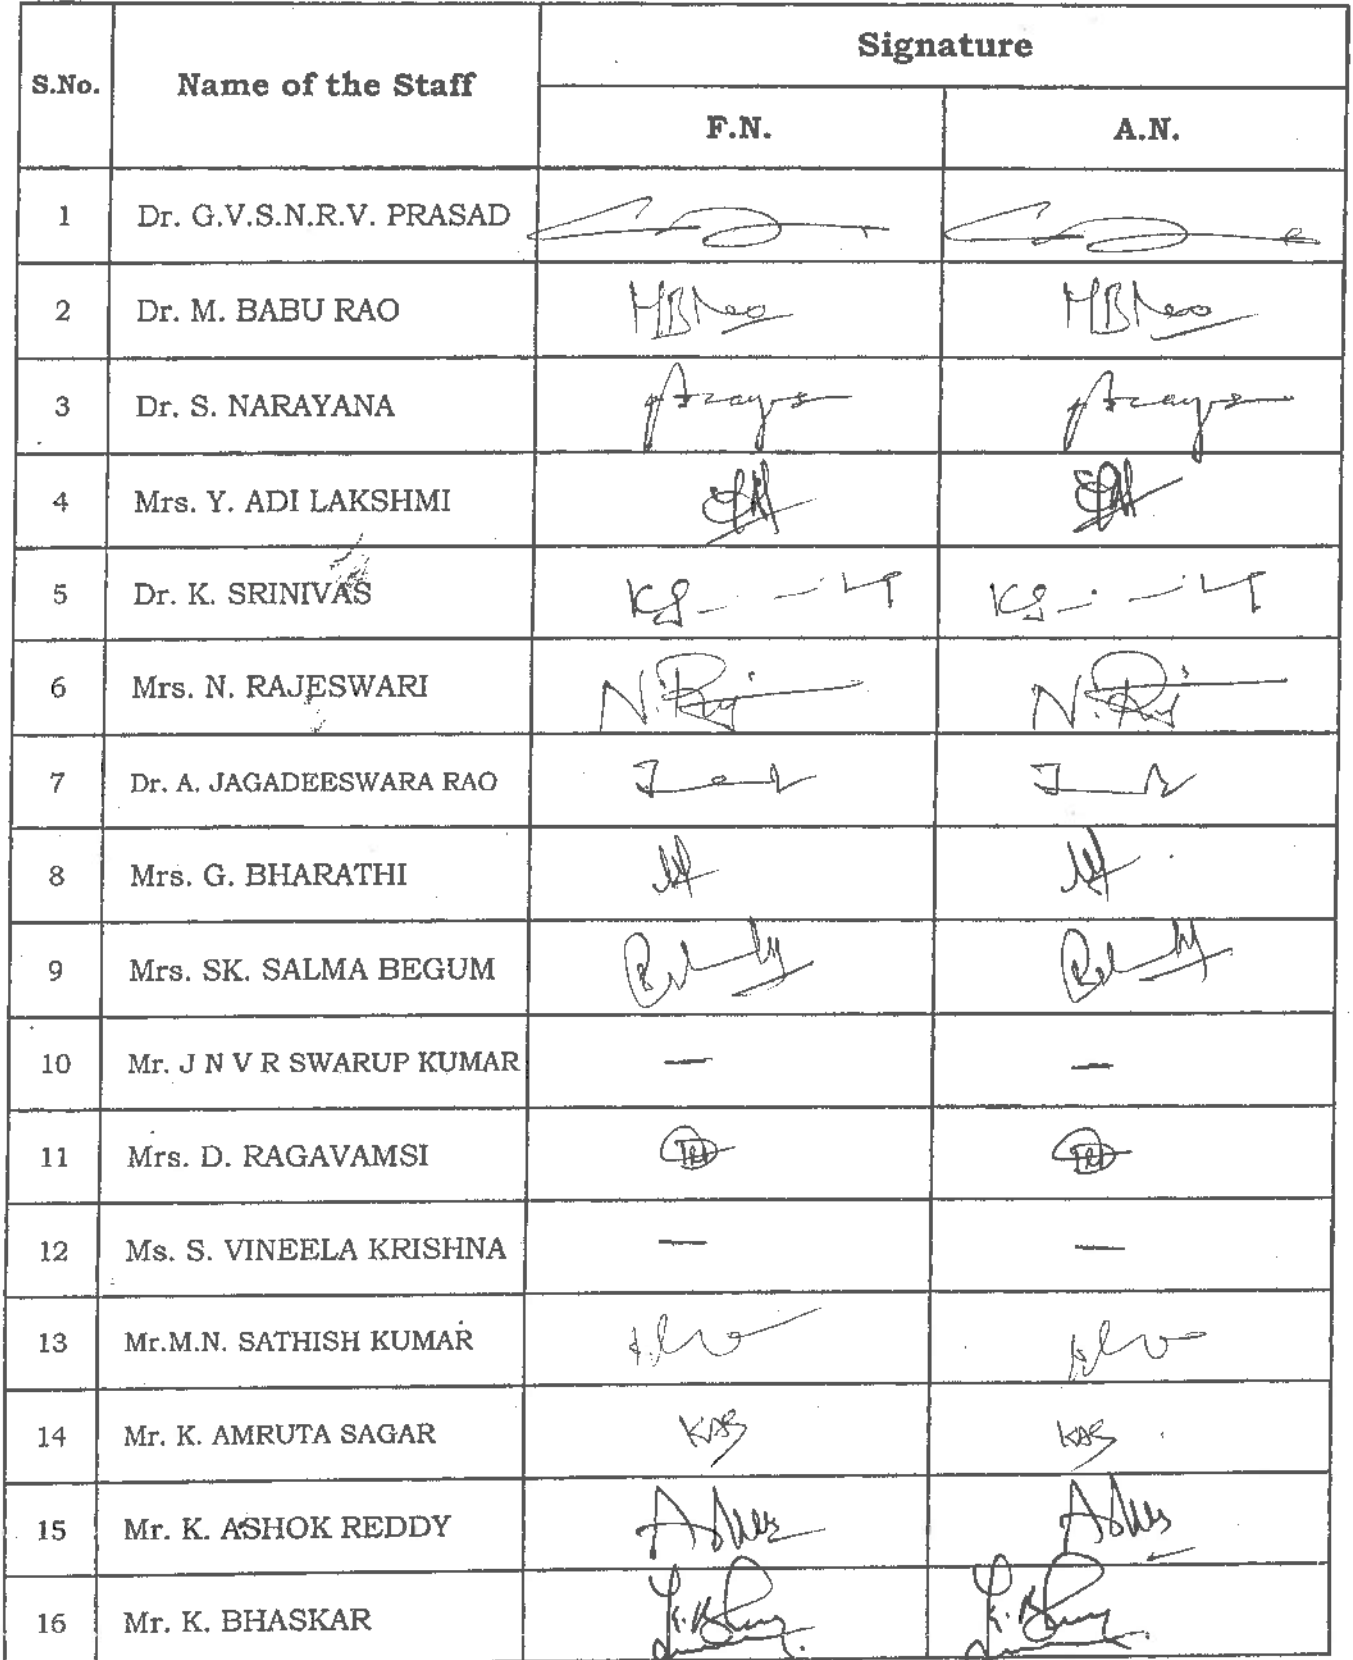 Signature
S.No. Name of the Staff
F.N. A.N.
1 Dr. G.V.S.N.R.V. PRASAD
2 Dr. M. BABU RAO MBRao MBRao
3 Dr. S. NARAYANA
4 Mrs. Y. ADI LAKSHMI
5 Dr. K. SRINIVAS
6 Mrs. N. RAJESWARI N.Raj N.Raj
7 Dr. A. JAGADEESWARA RAO
8 Mrs. G. BHARATHI
9 Mrs. SK. SALMA BEGUM
10 Mr. J N V R SWARUP KUMAR — —
11 Mrs. D. RAGAVAMSI
12 Ms. S. VINEELA KRISHNA — —
13 Mr.M.N. SATHISH KUMAR
14 Mr. K. AMRUTA SAGAR KAS KAS
15 Mr. K. ASHOK REDDY
16 Mr. K. BHASKAR